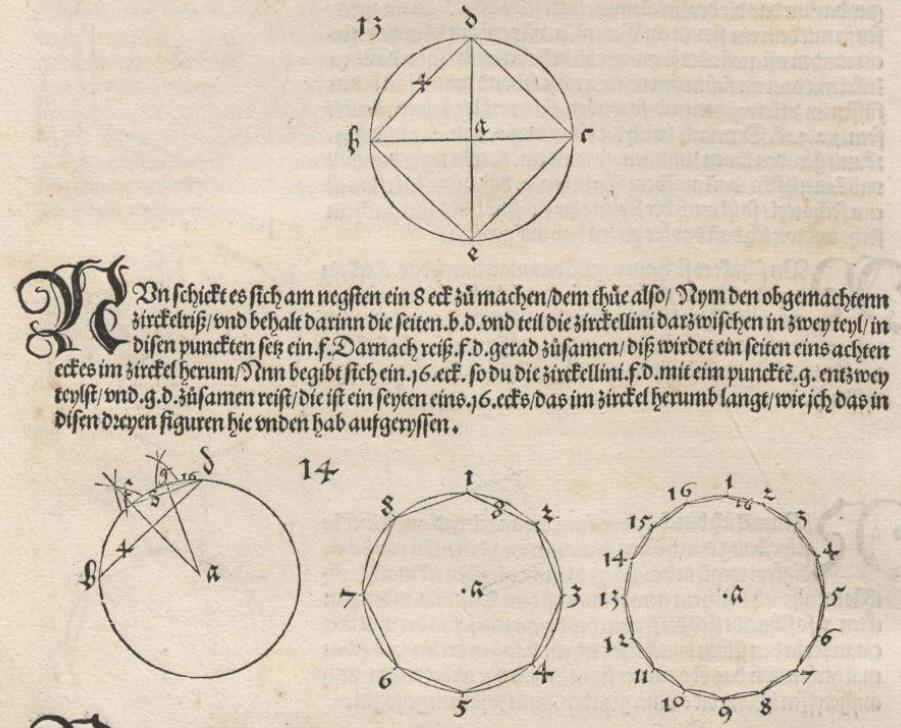 13
d
4
b a c
e
NUn schickt es sich am negsten ein 8 eck zů machen/dem thůe also/ Nym den obgemachtenn
zirckelriß/vnd behalt darinn die seiten.b.d.vnd teil die zirckellini darzwischen in zwey teyl/in
disen punckten setz ein.f.Darnach reiß.f.d.gerad zůsamen/diß wirdet ein seiten eins achten
eckes im zirckel herum/Nnn begibt sich ein.16.eck. so du die zirckellini.f.d.mit eim puncktē.g. entzwey
teylst/vnd.g.d.zůsamen reist/die ist ein seyten eins.16.ecks/das im zirckel herumb langt/wie jch das in
disen dreyen figuren hie vnden hab aufgeryssen.
14
f 8 g 16 d
4
b a
1 8 2 3 4 5 6 7 8
a
1 16 2 3 4 5 6 7 8 9 10 11 12 13 14 15 16
a